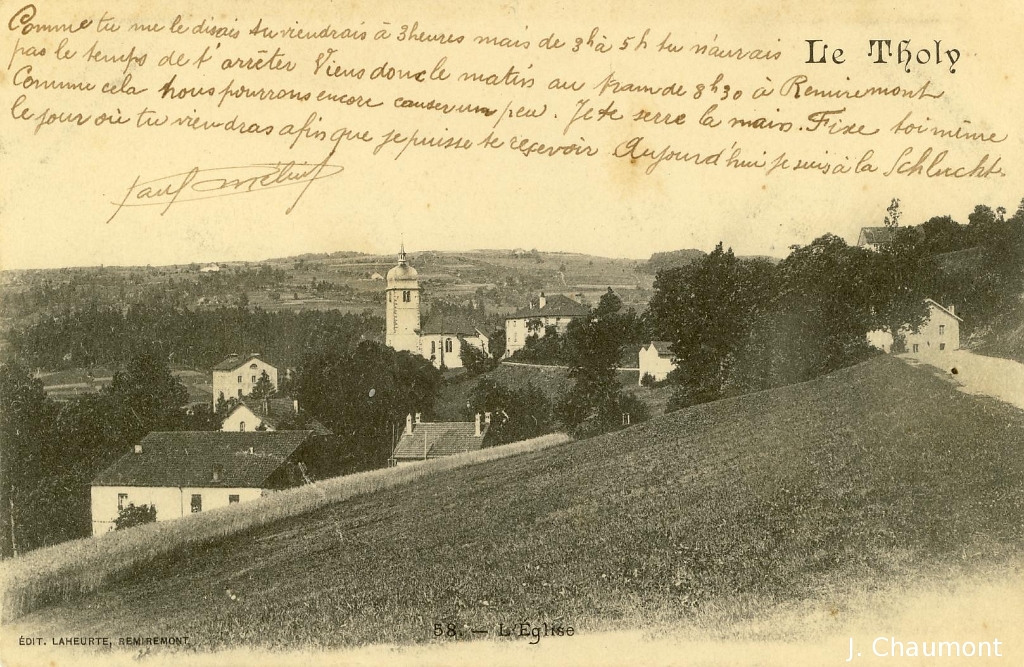 Comme tu me le disais tu viendrais à 3 heures mais de 3h à 5h tu n'aurais
Le Tholy
pas le temps de t'arrêter Viens donc le matin au tram de 8h30 à Remiremont
Comme cela nous pourrons encore causer un peu. Je te serre la main. Fixe toi même
le jour où tu viendras afin que je puisse te resevoir Aujourd'hui je suis à la Schlucht.
Paul
58. — L'Église
ÉDIT. LAHEURTE, REMIREMONT
J. Chaumont